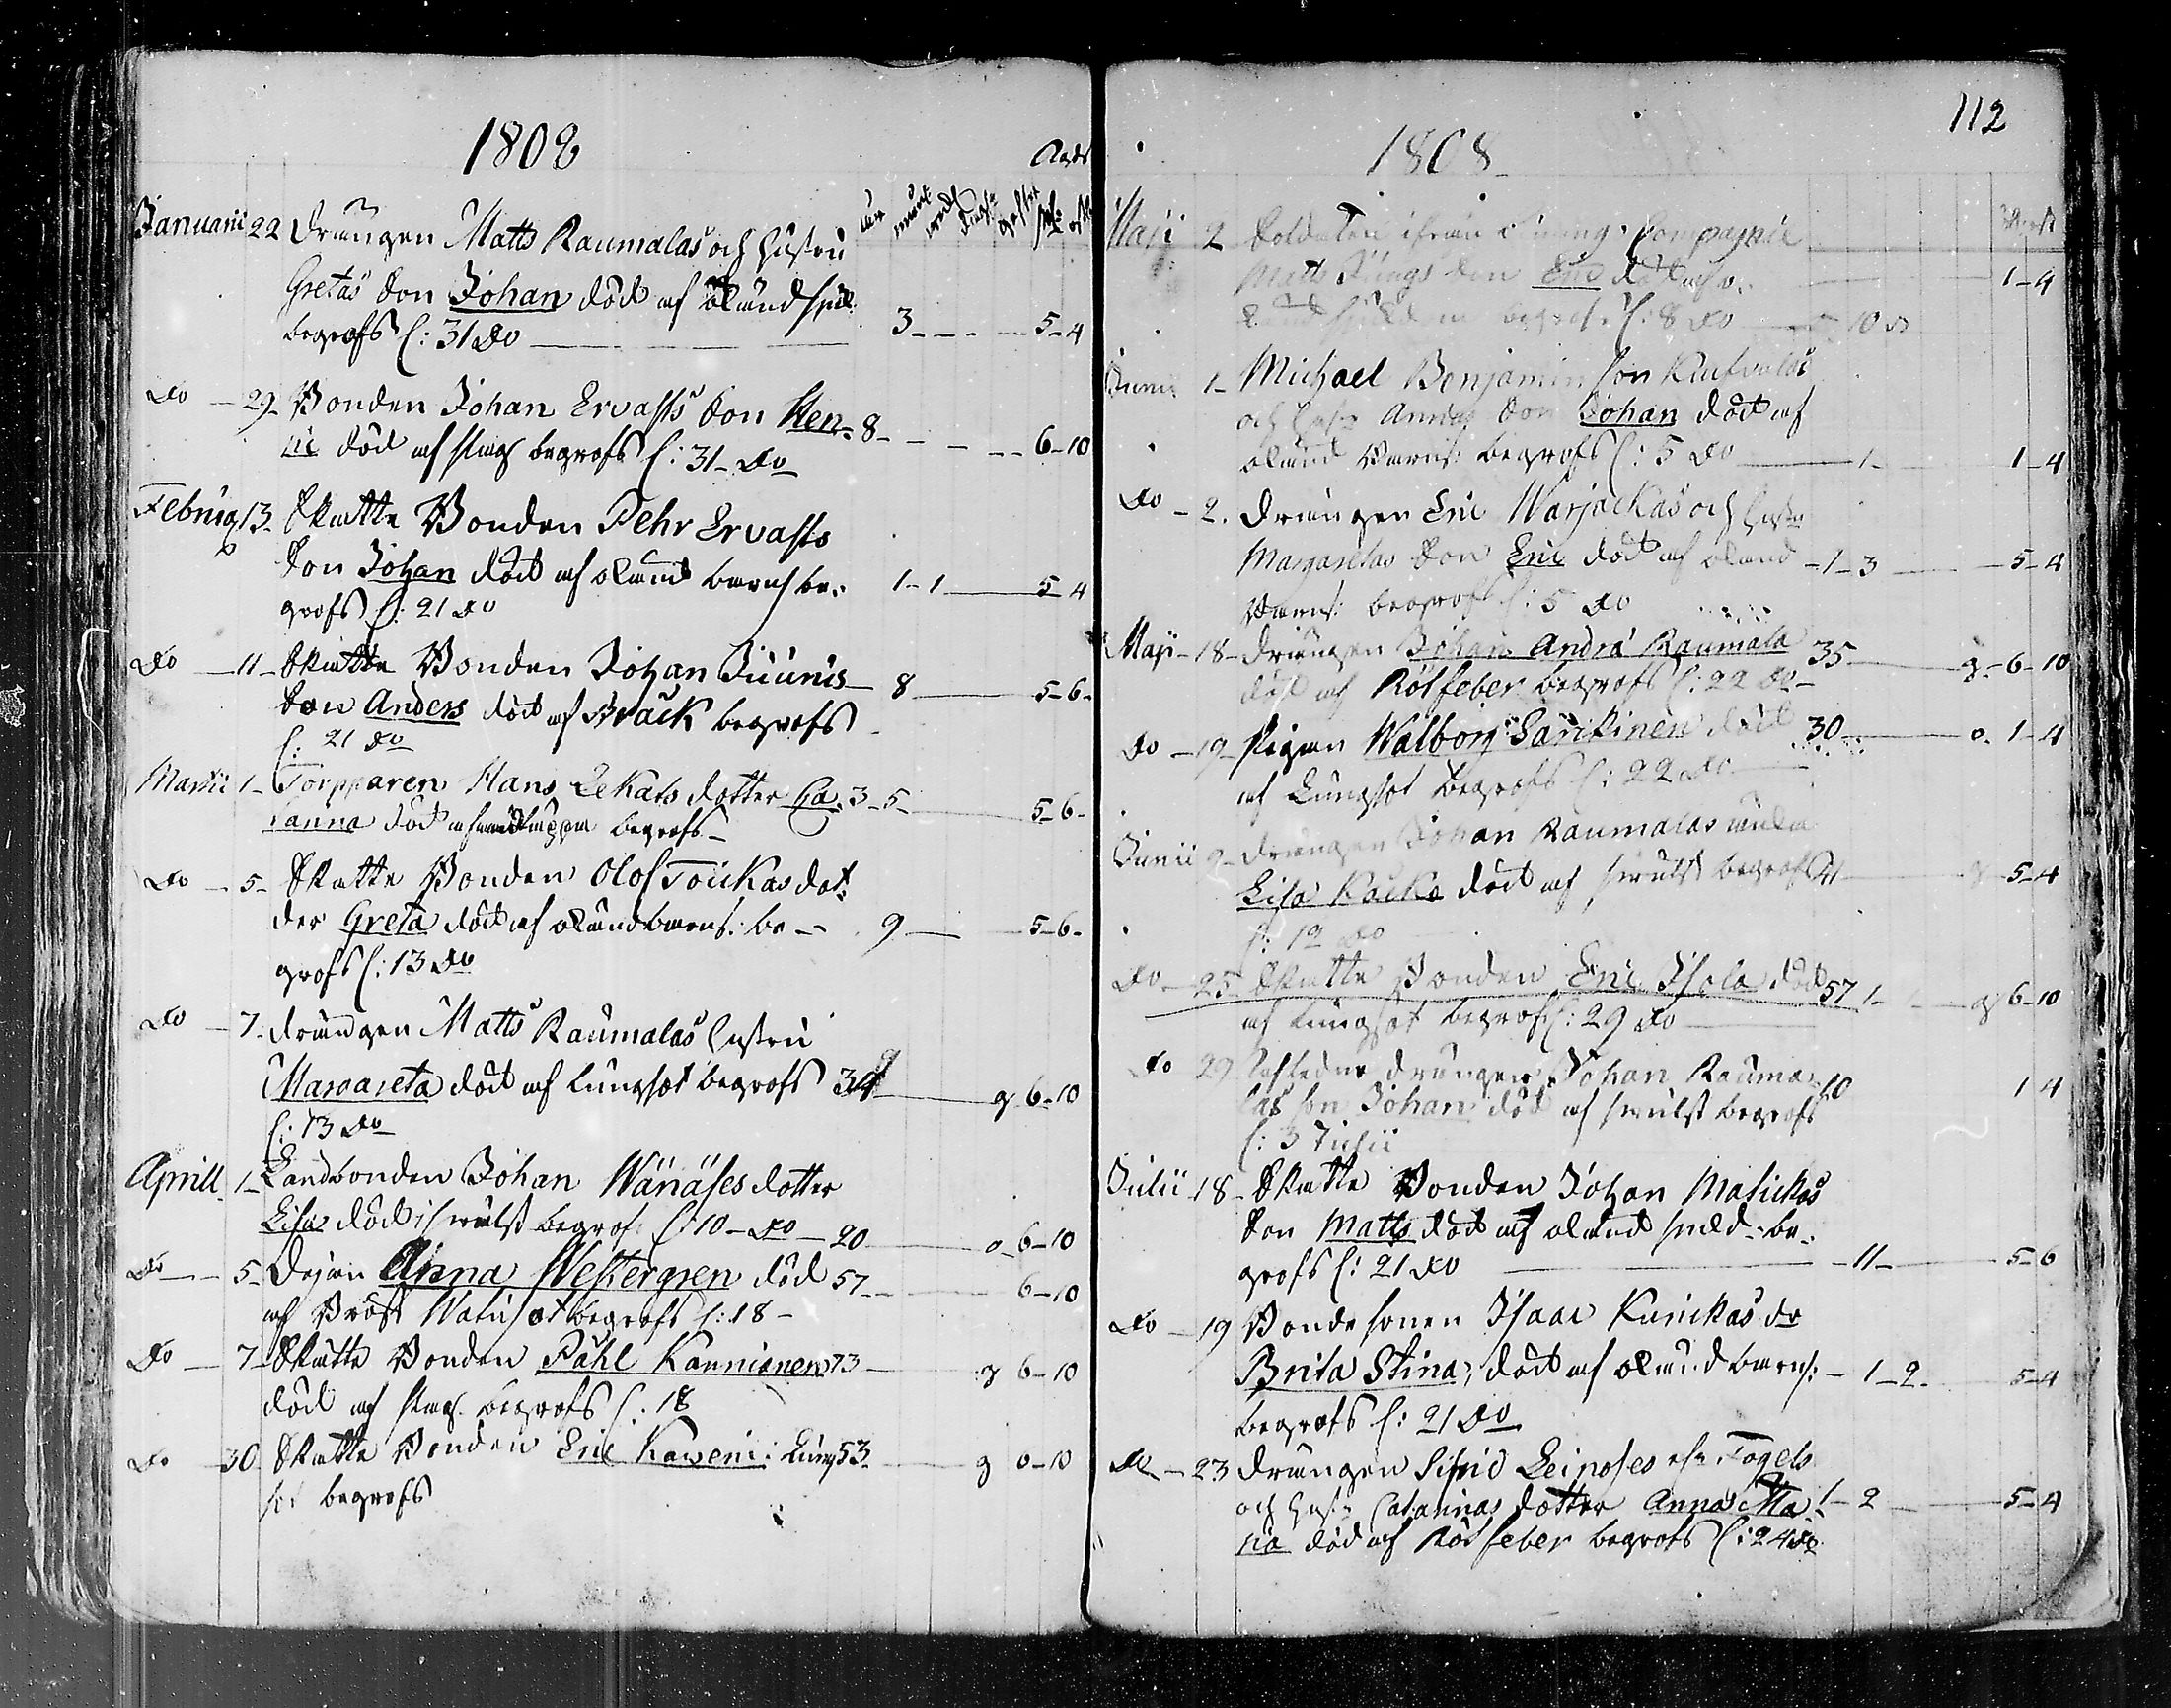 1808
Januarii 22 drängen Matts Raumalas och hustru
Gretas Son Johan död af okänd sjuk:
begrofs d: 31 do 3 5-4
do 29 Bonden Johan Ervasts Son Hen- 8 6-10
ric död af slag begrofs d: 31 do
Februar 13 Skatte Bonden Pehr Ervasts
Son Johan död af okänd barns be- 1-1 5-4
grofs d: 21 do
do 11 Skatte Bonden Johan Juunis
Son Anders död af Bråck begrofs 8 5-6
d: 21 do
Martii 1 Torpparen Hans Lekats dotter Ca- 3-5 5-6
begrofs
do 5 Skatte Bonden Olof Toickas dot-
ter Greta död af okänd barns: be- 9 5-6
grofs d: 13 do
do 7 drängen Matts Raumalas hustru
Margareta död af lungsot begrofs 34 g 6-10
d: 13 do
Aprill 1 Landbonden Johan Wänäses dotter
Lisa död i swulst begrof: d: 10 do 20 o 6-10
do 5 Dejan Anna Westergren död 57 6-10
af Bröst Watusot begrofs d: 18
do 7 Skatte Bonden Påhl Kannianen 73 g 6-10
död af slag begrofs d: 18
do 30 Skatte Bonden Eric Kaweni: Lung 53 g 6-10
sot begrofs
112
1808
Maji 2 Soldaten ifrån Compagnie
Matts Kungs Son Eric död af o- 1-4
begrofs d: 8 do 10
Junii 1 Michael Benjamin son
och hust: Annas Son Johan död af
okänd Barns: begrofs d: 5 do 1 1-4
do 2 drängen Eric Warjackas och hustru
Margaretas Son Eric död af okänd 1-3 5-4
Barns: begrofs d: 5 do
Maji 18 drängen Johan Andrs Raumala 35 g 6-10
död af Rötfeber begrofs d: 22 do
do 19 pigan Walborg Särikinen död 30 o 1-4
af Lungsot begrofs d: 22 do
Junii 9 drängen Johan Raumalas enka
Lisa Kacko död af swulst begrofs 71 5-4
d: 19 do
do 25 Skatte Bonden Eric Isola död 57 1 g 6-10
af lungsot begrofs d: 29 do
do 29 Afledne drängen Johan Rauma-
las son Johan död af swulst begrofs 10 1-4
d: 3 Julii
Julii 18 Skatte Bonden Johan Matickas
Son Matts död af okänd sjukd: be-
grofs d: 21 do 11 5-6
do 19 Bonde sonen Isaac Kunickas dr
Brita Stina, död af okänd barns: 1-2 5-4
begrofs d: 21 do
do 23 drängen Sifrid Leinoses Fogels
och hust: Catarinas dotter Anna Ma- 1-2 5-4
ria död af Rötfeber begrofs d: 24 do